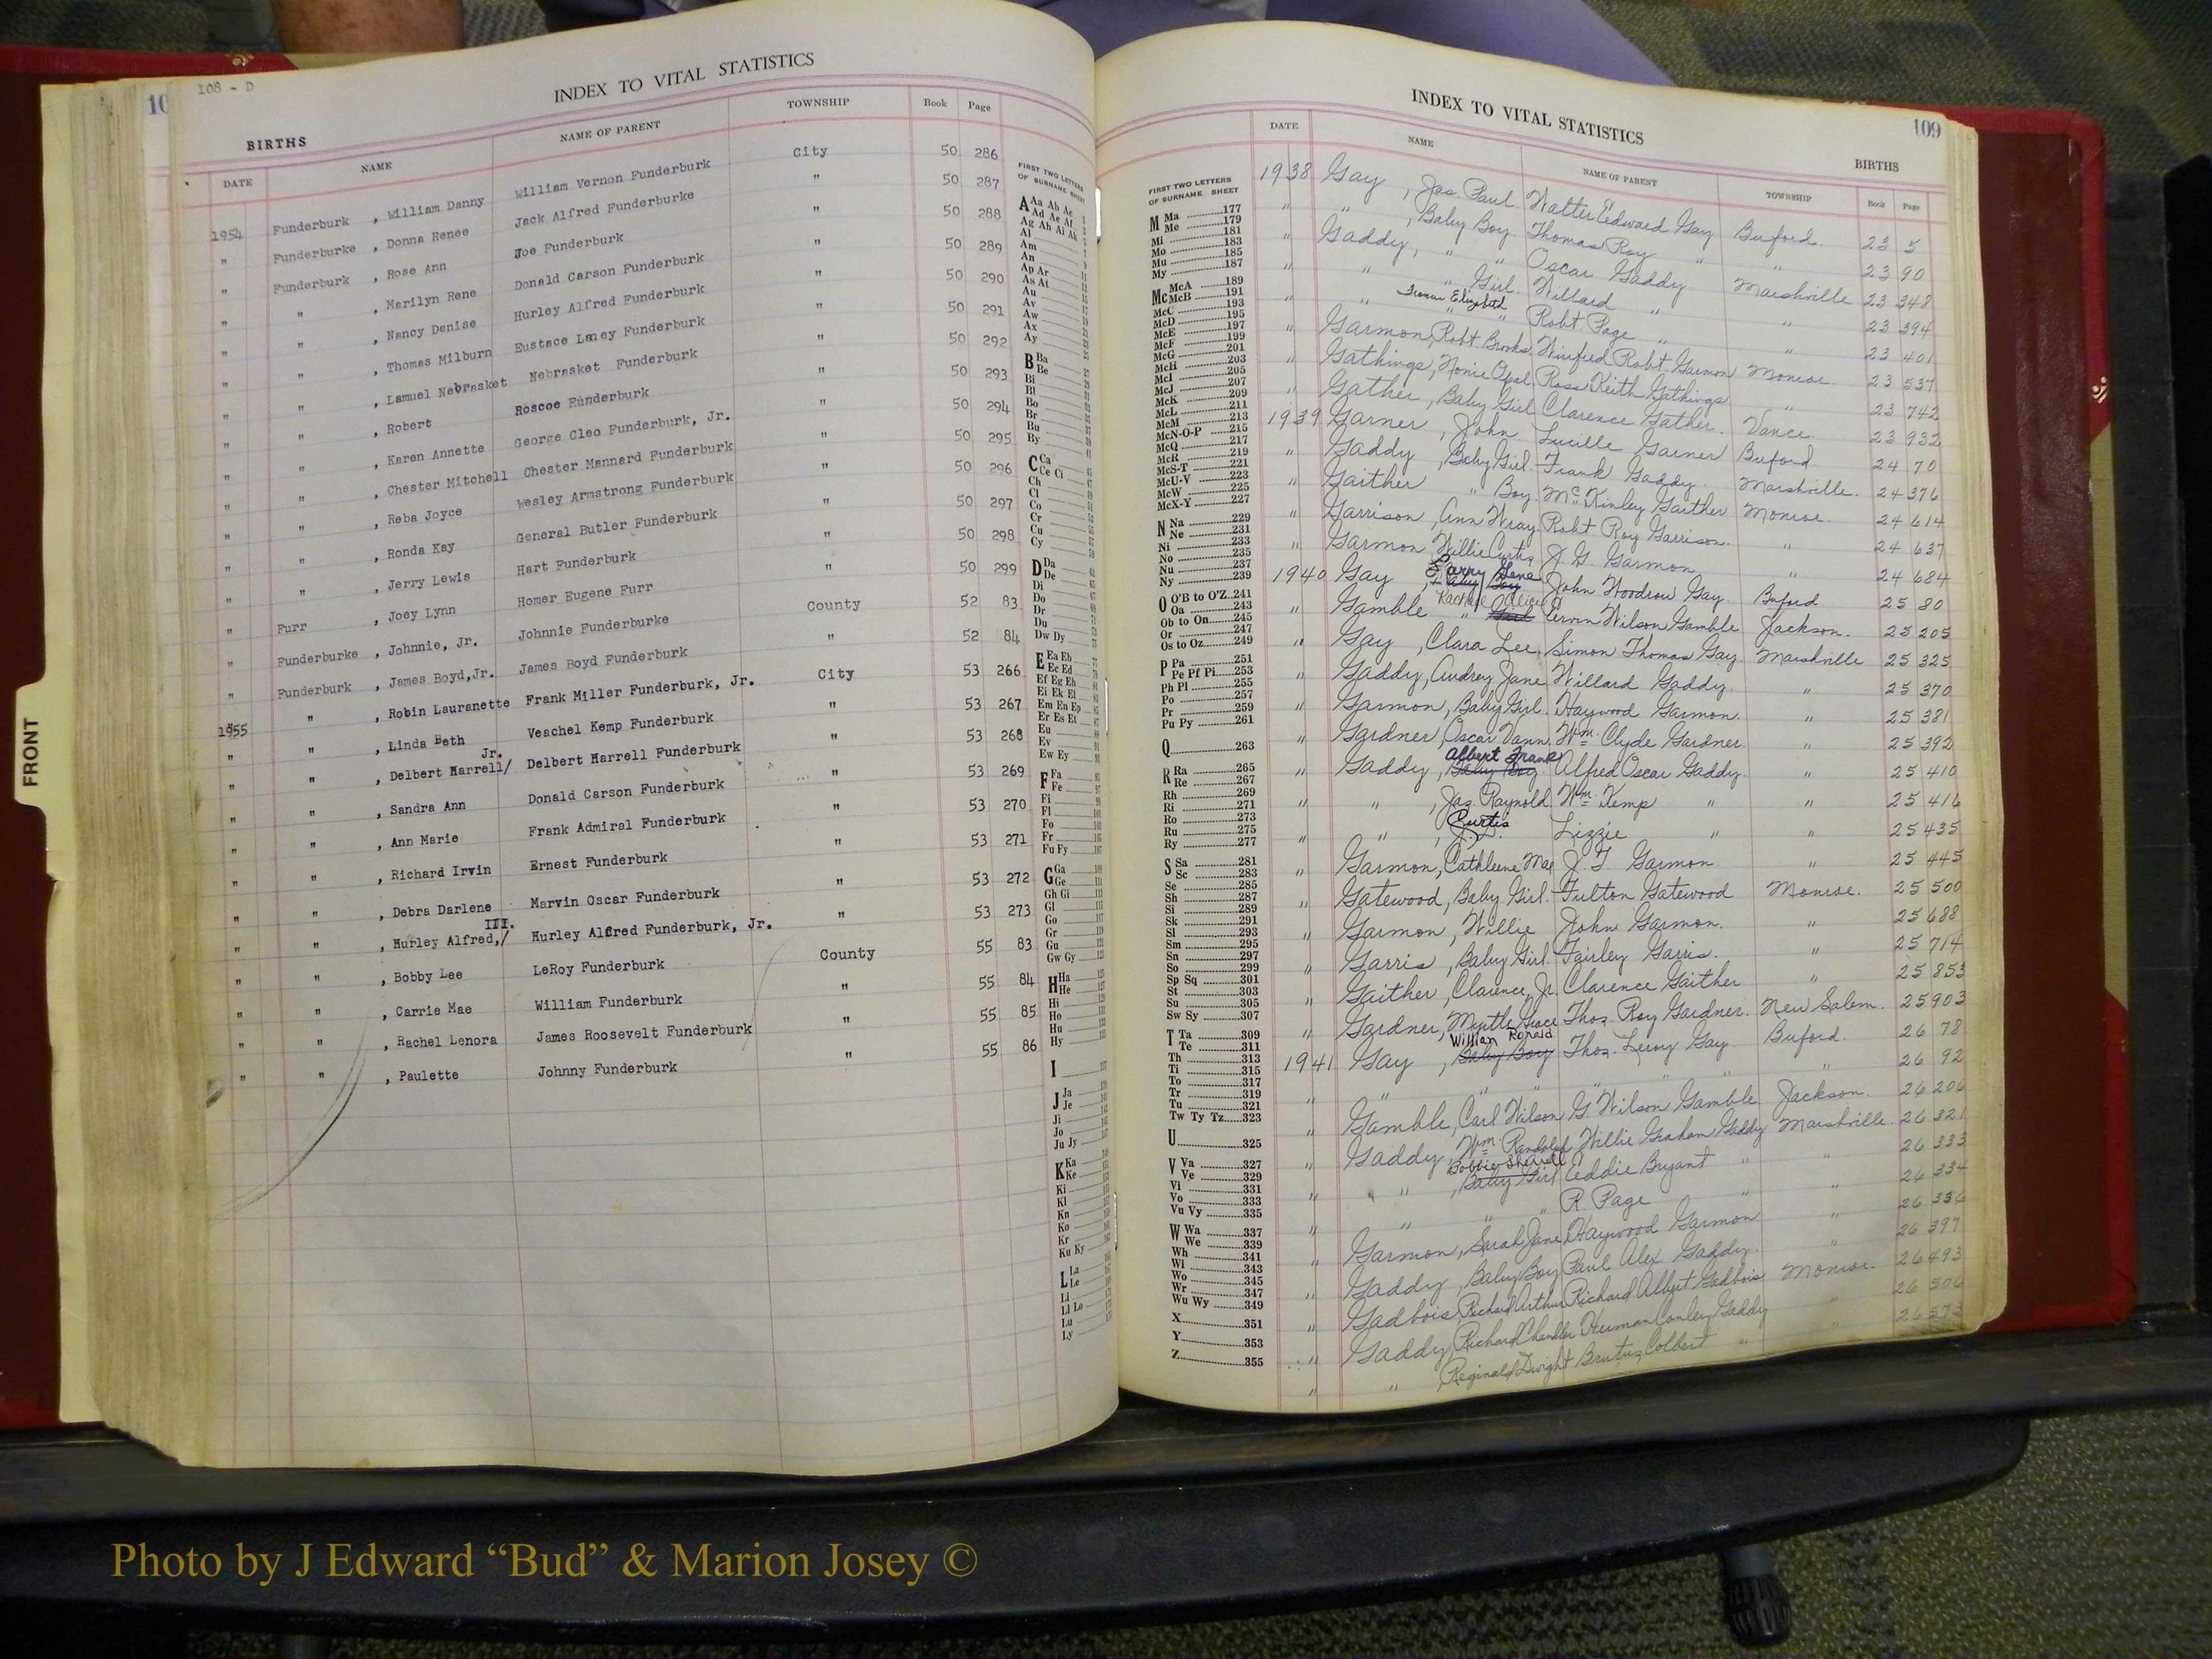 108 - D
INDEX TO VITAL STATISTICS
BIRTHS
DATE NAME NAME OF PARENT TOWNSHIP Book Page
1954 Funderburk , William Danny William Vernon Funderburk City 50 286
" Funderburke , Donna Renee Jack Alfred Funderburke " 50 287
" Funderburk , Rose Ann Joe Funderburk " 50 288
" " , Marilyn Rene Donald Carson Funderburk " 50 289
" " , Nancy Denise Hurley Alfred Funderburk " 50 290
" " , Thomas Milburn Eustace Laney Funderburk " 50 291
" " , Lamuel Nebrasket Nebrasket Funderburk " 50 292
" " , Robert Roscoe Funderburk " 50 293
" " , Karen Annette George Cleo Funderburk, Jr. " 50 294
" " , Chester Mitchell Chester Mannard Funderburk " 50 295
" " , Reba Joyce Wesley Armstrong Funderburk " 50 296
" " , Ronda Kay General Butler Funderburk " 50 297
" " , Jerry Lewis Hart Funderburk " 50 298
" Furr , Joey Lynn Homer Eugene Furr " 50 299
" Funderburke , Johnnie, Jr. Johnnie Funderburke County 52 83
" Funderburk , James Boyd,Jr. James Boyd Funderburk " 52 84
1955 " , Robin Lauranette Frank Miller Funderburk, Jr. City 53 266
" " , Linda Beth Veachel Kemp Funderburk " 53 267
" " , Delbert Harrell/ Jr. Delbert Harrell Funderburk " 53 268
" " , Sandra Ann Donald Carson Funderburk " 53 269
" " , Ann Marie Frank Admiral Funderburk " 53 270
" " , Richard Irvin Ernest Funderburk " 53 271
" " , Debra Darlene Marvin Oscar Funderburk " 53 272
" " , Hurley Alfred,/ III. Hurley Alfred Funderburk, Jr. " 53 273
" " , Bobby Lee LeRoy Funderburk County 55 83
" " , Carrie Mae William Funderburk " 55 84
" " , Rachel Lenora James Roosevelt Funderburk " 55 85
" " , Paulette Johnny Funderburk " 55 86
FRONT
FIRST TWO LETTERS
OF SURNAME SHEET
A Aa Ab Ac
Ad Ae Af
Ag Ah Ai Ak
Al
Am
An
Ap Ar
As At
Au
Av
Aw
Ax
Ay
B Ba
Be
Bi
Bl
Bo
Br
Bu
By
C Ca
Ce Ci
Ch
Cl
Co
Cr
Cu
Cy
D Da
De
Di
Do
Dr
Du
Dw Dy
E Ea Eb
Ec Ed
Ef Eg Eh
Ei Ek El
Em En Ep
Er Es Et
Eu
Ev
Ew Ey
F Fa
Fe
Fi
Fl
Fo
Fr
Fu Fy
G Ga
Ge
Gh Gi
Gl
Go
Gr
Gu
Gw Gy
H Ha
He
Hi
Ho
Hu
Hy
I
J Ja
Je
Ji
Jo
Ju Jy
K Ka
Ke
Ki
Kl
Kn
Ko
Kr
Ku Ky
L La
Le
Li
Ll Lo
Lu
Ly
INDEX TO VITAL STATISTICS 109
BIRTHS
FIRST TWO LETTERS
OF SURNAME SHEET
M Ma 177
Me 179
Mi 181
Mo 183
Mu 185
My 187
Mc McA 189
McB 191
McC 193
McD 195
McE 197
McF 199
McG 201
McH 203
McI 205
McJ 207
McK 209
McL 211
McM 213
McN-O-P 215
McQ 217
McR 219
McS-T 221
McU-V 223
McW 225
McX-Y 227
N Na 229
Ne 231
Ni 233
No 235
Nu 237
Ny 239
O O'B to O'Z 241
Oa 243
Ob to On 245
Or 247
Os to Oz 249
P Pa 251
Pe Pf Pi 253
Ph Pl 255
Po 257
Pr 259
Pu Py 261
Q 263
R Ra 265
Re 267
Rh 269
Ri 271
Ro 273
Ru 275
Ry 277
S Sa 281
Sc 283
Se 285
Sh 287
Si 289
Sk 291
Sl 293
Sm 295
Sn 297
So 299
Sp Sq 301
St 303
Su 305
Sw Sy 307
T Ta 309
Te 311
Th 313
Ti 315
To 317
Tr 319
Tu 321
Tw Ty Tz 323
U 325
V Va 327
Ve 329
Vi 331
Vo 333
Vu Vy 335
W Wa 337
We 339
Wh 341
Wi 343
Wo 345
Wr 347
Wu Wy 349
X 351
Y 353
Z 355
DATE NAME NAME OF PARENT TOWNSHIP Book Page
1938 Gay , Jas. Paul Walter Edward Gay Buford 23 5
" " , Baby Boy Thomas Roy " " 23 90
" Gaddy, " " Oscar Gaddy Marshville 23 348
" " " Girl Willard " " 23 394
" " Elizabeth " Robt Page " " 23 401
" Garmon, Robt. Brooks Winfred Robt. Garmon Monroe 23 537
" Gathings, Nonie Opal Ross Keith Gathings " 23 742
" Gather, Baby Girl Clarence Gather Vance 23 932
1939 Garner , John Lucille Garner Buford 24 70
" Gaddy , Baby Girl Frank Gaddy Marshville 24 376
" Gaither " Boy McKinley Gaither Monroe 24 614
" Garrison, Ann Wray Robt Roy Garrison " 24 637
" Garmon Willie Curtis J. G. Garmon " 24 684
1940 Gay , Larry Gene Baby Boy John Woodrow Gay Buford 25 80
" Gamble " Alice Girl Ervin Wilson Gamble Jackson 25 205
" Gay , Clara Lee Simon Thomas Gay Marshville 25 325
" Gaddy, Audrey Jane Willard Gaddy " 25 370
" Garmon, Baby Girl Haywood Garmon " 25 381
" Gardner, Oscar Vann Wm. Clyde Gardner " 25 392
" Gaddy, Albert Frank Baby Boy Alfred Oscar Gaddy " 25 410
" " , Jas. Raynold Wm. Kemp " " 25 416
" " , Curtis Lizzie " " 25 435
" Garmon, Cathleene Mae J. T. Garmon " 25 445
" Gatewood, Baby Girl Fulton Gatewood Monroe 25 500
" Garmon, Willie John Garmon " 25 688
" Garris, Baby Girl Fairley Garris " 25 714
" Gaither, Clarence, Jr. Clarence Gaither " 25 853
" Gardner, Myrtle Grace Thos. Roy Gardner New Salem 25 903
1941 Gay , William Ronald Baby Boy Thos. Leroy Gay Buford 26 78
" " " " " " " 26 92
" Gamble, Carl Wilson G. Wilson Gamble Jackson 26 206
" Gaddy, Wm. Randolph Willie Graham Gaddy Marshville 26 321
" " , Bobbie Baby Girl Eddie Bryant " " 26 333
" " " " R. Page " " 26 334
" Garmon, Sarah Jane Haywood Garmon " 26 336
" Gaddy, Baby Boy Paul Alex. Gaddy " 26 397
" Gadbois, Richard Arthur Richard Albert Gadbois Monroe 26 493
" Gaddy, Richard Chandler Conley Gaddy " 26 506
" " Reginald Dwight Brutus Colbert " " 26
Photo by J Edward “Bud” & Marion Josey ©